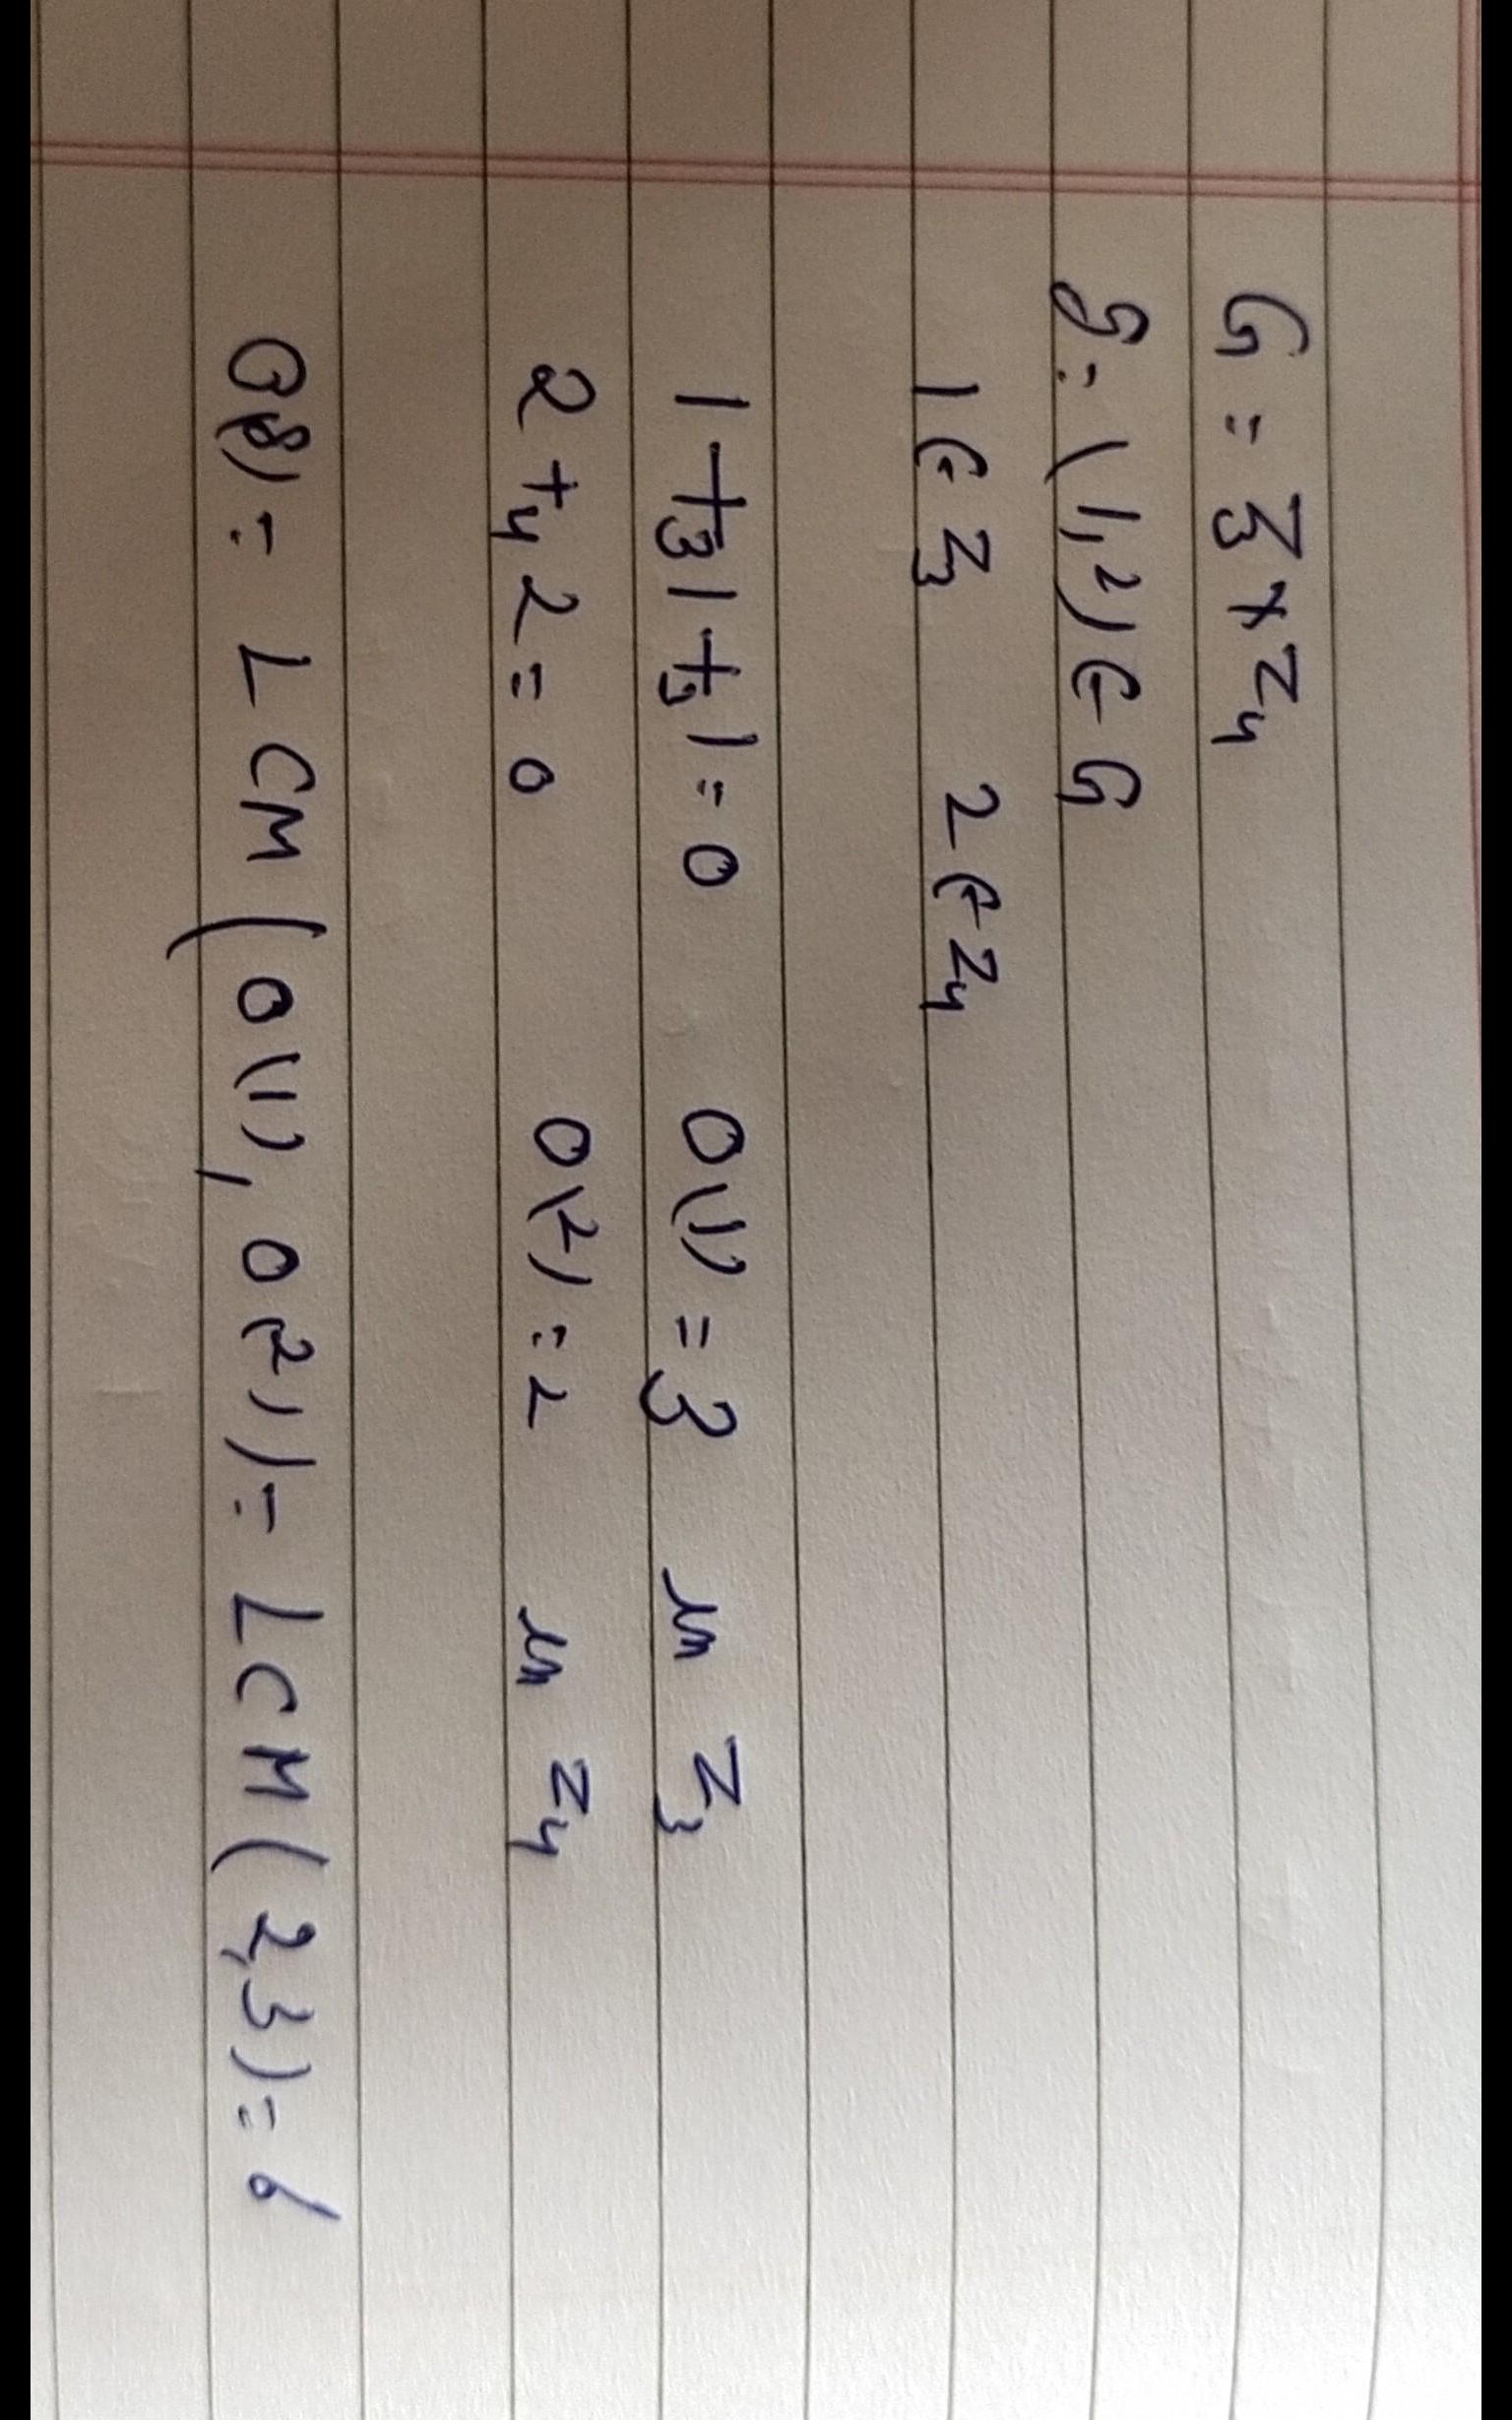 G = Z₃ × Z₄
g = (1,2) ∈ G
1 ∈ Z₃ 2 ∈ Z₄
1 +₃ 1 +₃ 1 = 0 O(1) = 3 in Z₃
2 +₄ 2 = 0 O(2) = 2 in Z₄
O(g) = LCM(O(1), O(2)) = LCM(2,3) = 6